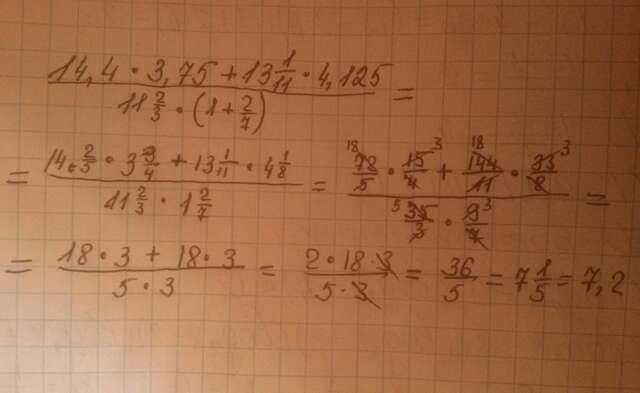 14,4 · 3,75 + 13 1/11 · 4,125 / 11 2/3 · (1 + 2/7) =
= 14 2/5 · 3 3/4 + 13 1/11 · 4 1/8 / 11 2/3 · 1 2/7 = 18 78/5 · 15/4 3 + 18 144/11 · 33/8 3 / 5 35/3 · 9/7 3 =
= 18 · 3 + 18 · 3 / 5 · 3 = 2 · 18 · 3 / 5 · 3 = 36/5 = 7 1/5 = 7,2